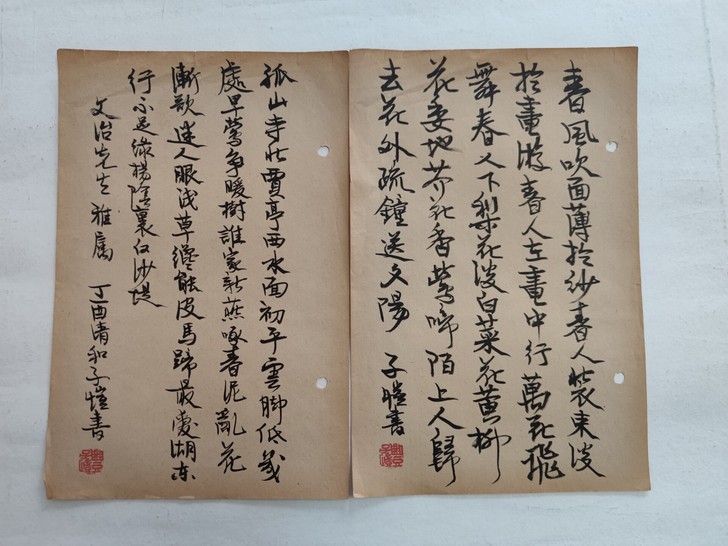 春風吹面薄於紗春人裝束淡
於畫游春人在畫中行萬花飛
舞春人下梨花淡白菜花黃柳
花委地芥花香鶯啼陌上人歸
去花外疏鐘送夕陽 子愷書
孤山寺北賈亭西水面初平雲腳低幾
處早鶯爭暖樹誰家新燕啄春泥亂花
漸欲迷人眼浅草纔能没馬蹄最愛湖东
行不足绿楊陰裏白沙堤
文治先生雅属 丁酉清和子愷書